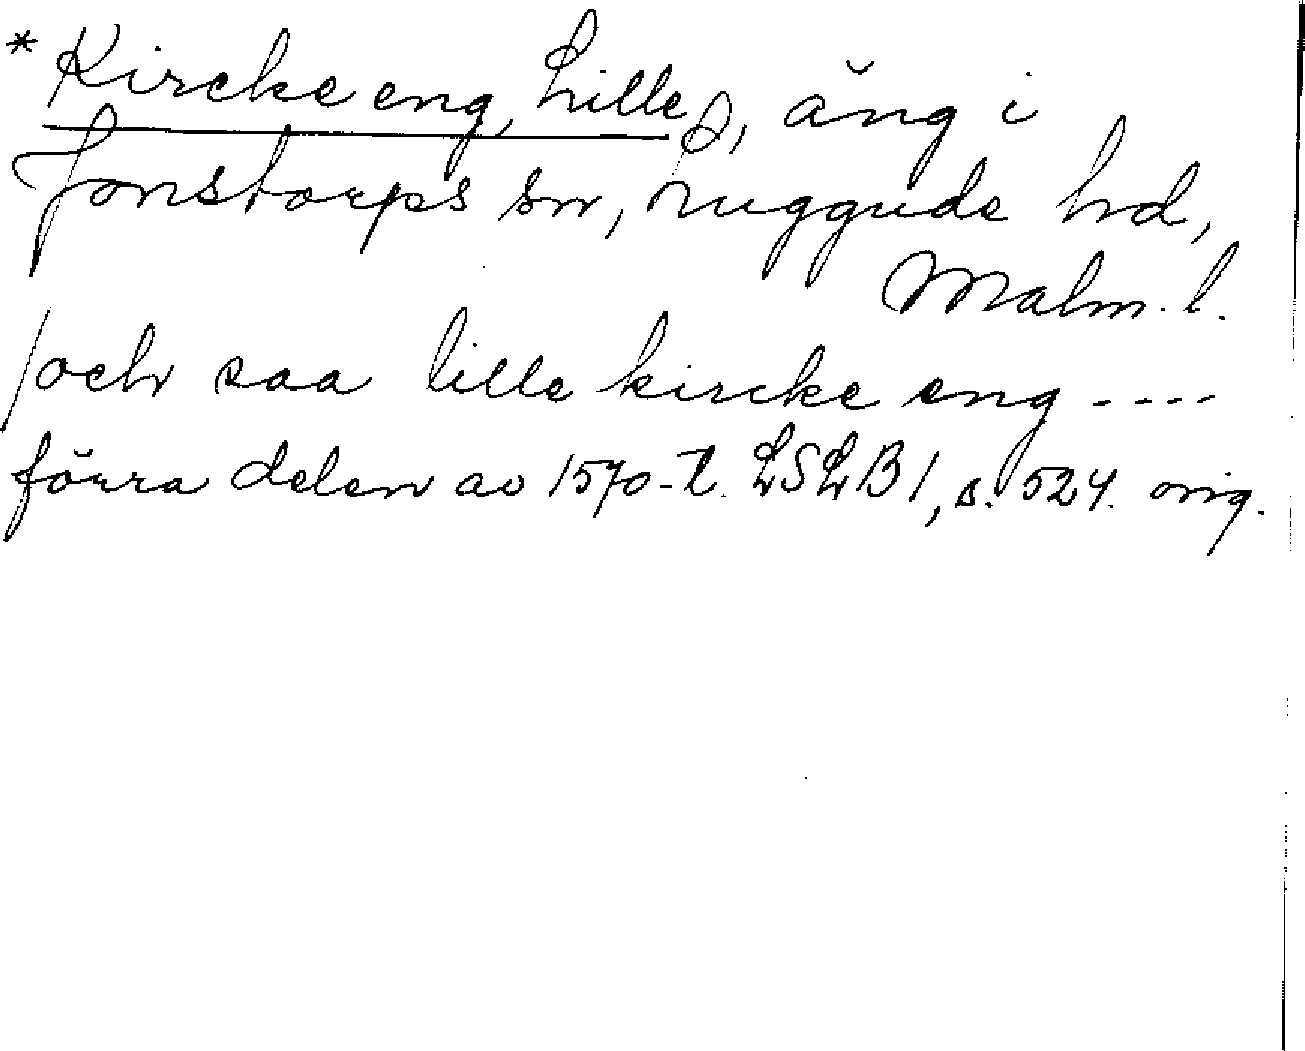 * Kircke eng, Lille, äng i
Jonstorps sn, Luggude hd,
Malm. l.
/och saa lille kircke eng ----
förra delen av 1570-t. LSLB 1, s. 524. orig.